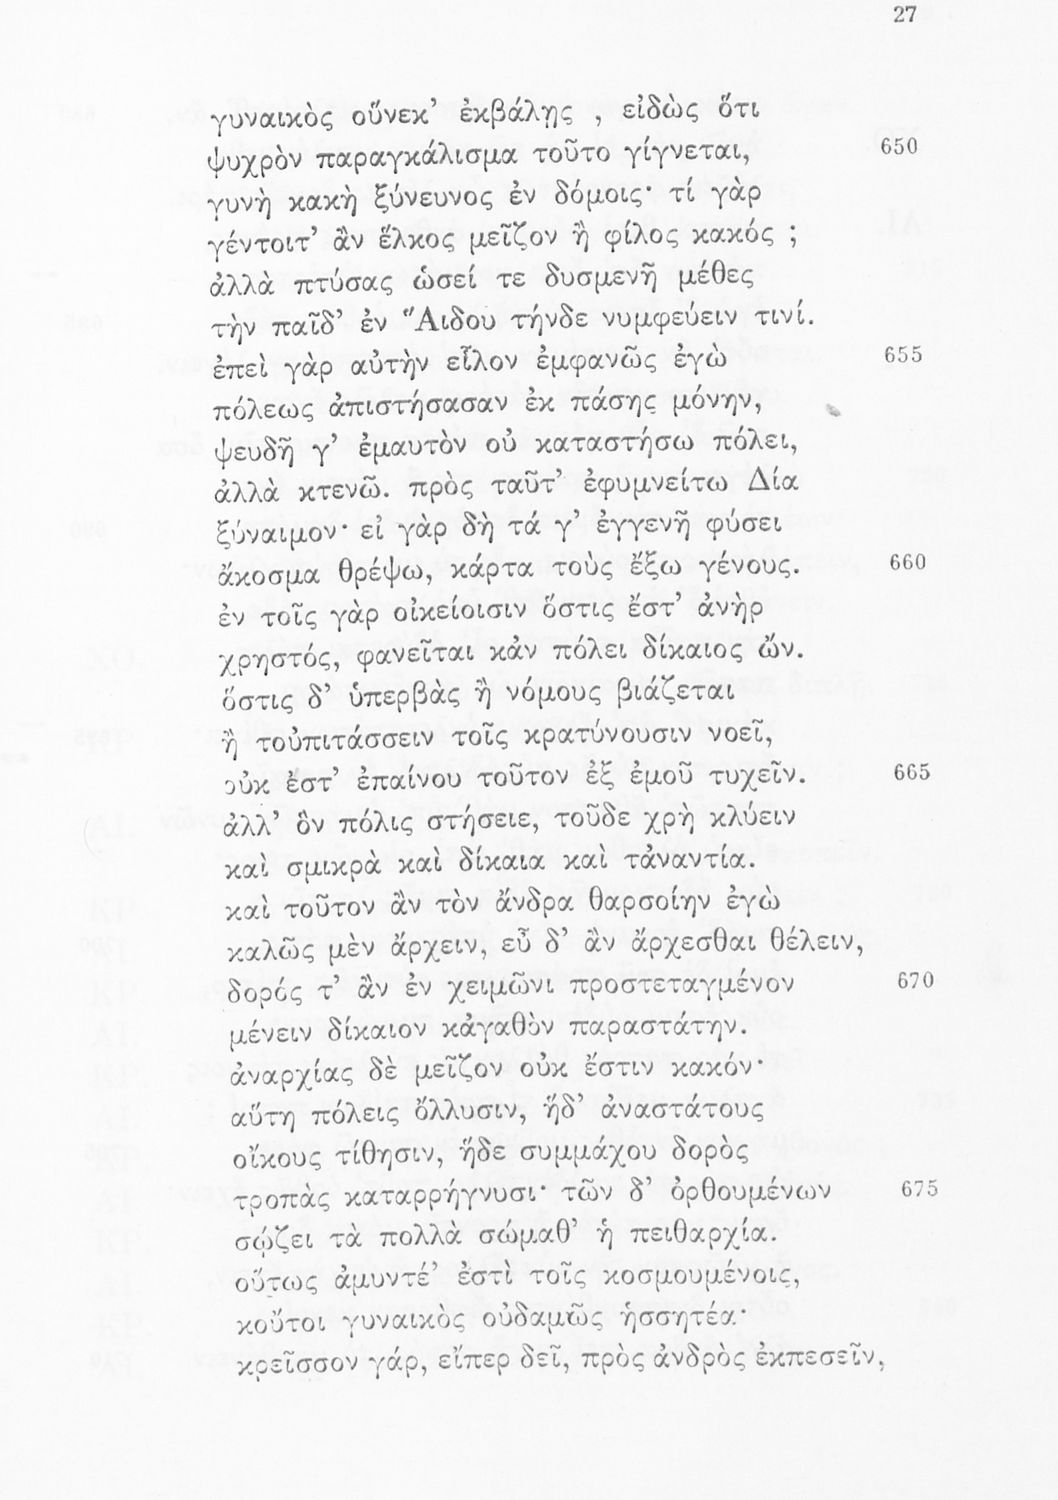 27
γυναικὸς οὕνεκ’ ἐκβάλῃς , εἰδὼς ὅτι
ψυχρὸν παραγκάλισμα τοῦτο γίγνεται, 650
γυνὴ κακὴ ξύνευνος ἐν δόμοις· τί γὰρ
γένοιτ’ ἂν ἕλκος μεῖζον ἢ φίλος κακός ;
ἀλλὰ πτύσας ὡσεί τε δυσμενῆ μέθες
τὴν παῖδ’ ἐν Ἅιδου τήνδε νυμφεύειν τινί.
ἐπεὶ γὰρ αὐτὴν εἷλον ἐμφανῶς ἐγὼ 655
πόλεως ἀπιστήσασαν ἐκ πάσης μόνην,
ψευδῆ γ’ ἐμαυτὸν οὐ καταστήσω πόλει,
ἀλλὰ κτενῶ. πρὸς ταῦτ’ ἐφυμνείτω Δία
ξύναιμον· εἰ γὰρ δὴ τά γ’ ἐγγενῆ φύσει
ἄκοσμα θρέψω, κάρτα τοὺς ἔξω γένους. 660
ἐν τοῖς γὰρ οἰκείοισιν ὅστις ἔστ’ ἀνὴρ
χρηστός, φανεῖται κἀν πόλει δίκαιος ὤν.
ὅστις δ’ ὑπερβὰς ἢ νόμους βιάζεται
ἢ τοὐπιτάσσειν τοῖς κρατύνουσιν νοεῖ,
οὐκ ἔστ’ ἐπαίνου τοῦτον ἐξ ἐμοῦ τυχεῖν. 665
ἀλλ’ ὃν πόλις στήσειε, τοῦδε χρὴ κλύειν
καὶ σμικρὰ καὶ δίκαια καὶ τἀναντία.
καὶ τοῦτον ἂν τὸν ἄνδρα θαρσοίην ἐγὼ
καλῶς μὲν ἄρχειν, εὖ δ’ ἂν ἄρχεσθαι θέλειν,
δορός τ’ ἂν ἐν χειμῶνι προστεταγμένον 670
μένειν δίκαιον κἀγαθὸν παραστάτην.
ἀναρχίας δὲ μεῖζον οὐκ ἔστιν κακόν·
αὕτη πόλεις ὄλλυσιν, ἥδ’ ἀναστάτους
οἴκους τίθησιν, ἥδε συμμάχου δορὸς
τροπὰς καταρρήγνυσι· τῶν δ’ ὀρθουμένων 675
σῴζει τὰ πολλὰ σώμαθ’ ἡ πειθαρχία.
οὕτως ἀμυντέ’ ἐστὶ τοῖς κοσμουμένοις,
κοὔτοι γυναικὸς οὐδαμῶς ἡσσητέα·
κρεῖσσον γάρ, εἴπερ δεῖ, πρὸς ἀνδρὸς ἐκπεσεῖν,